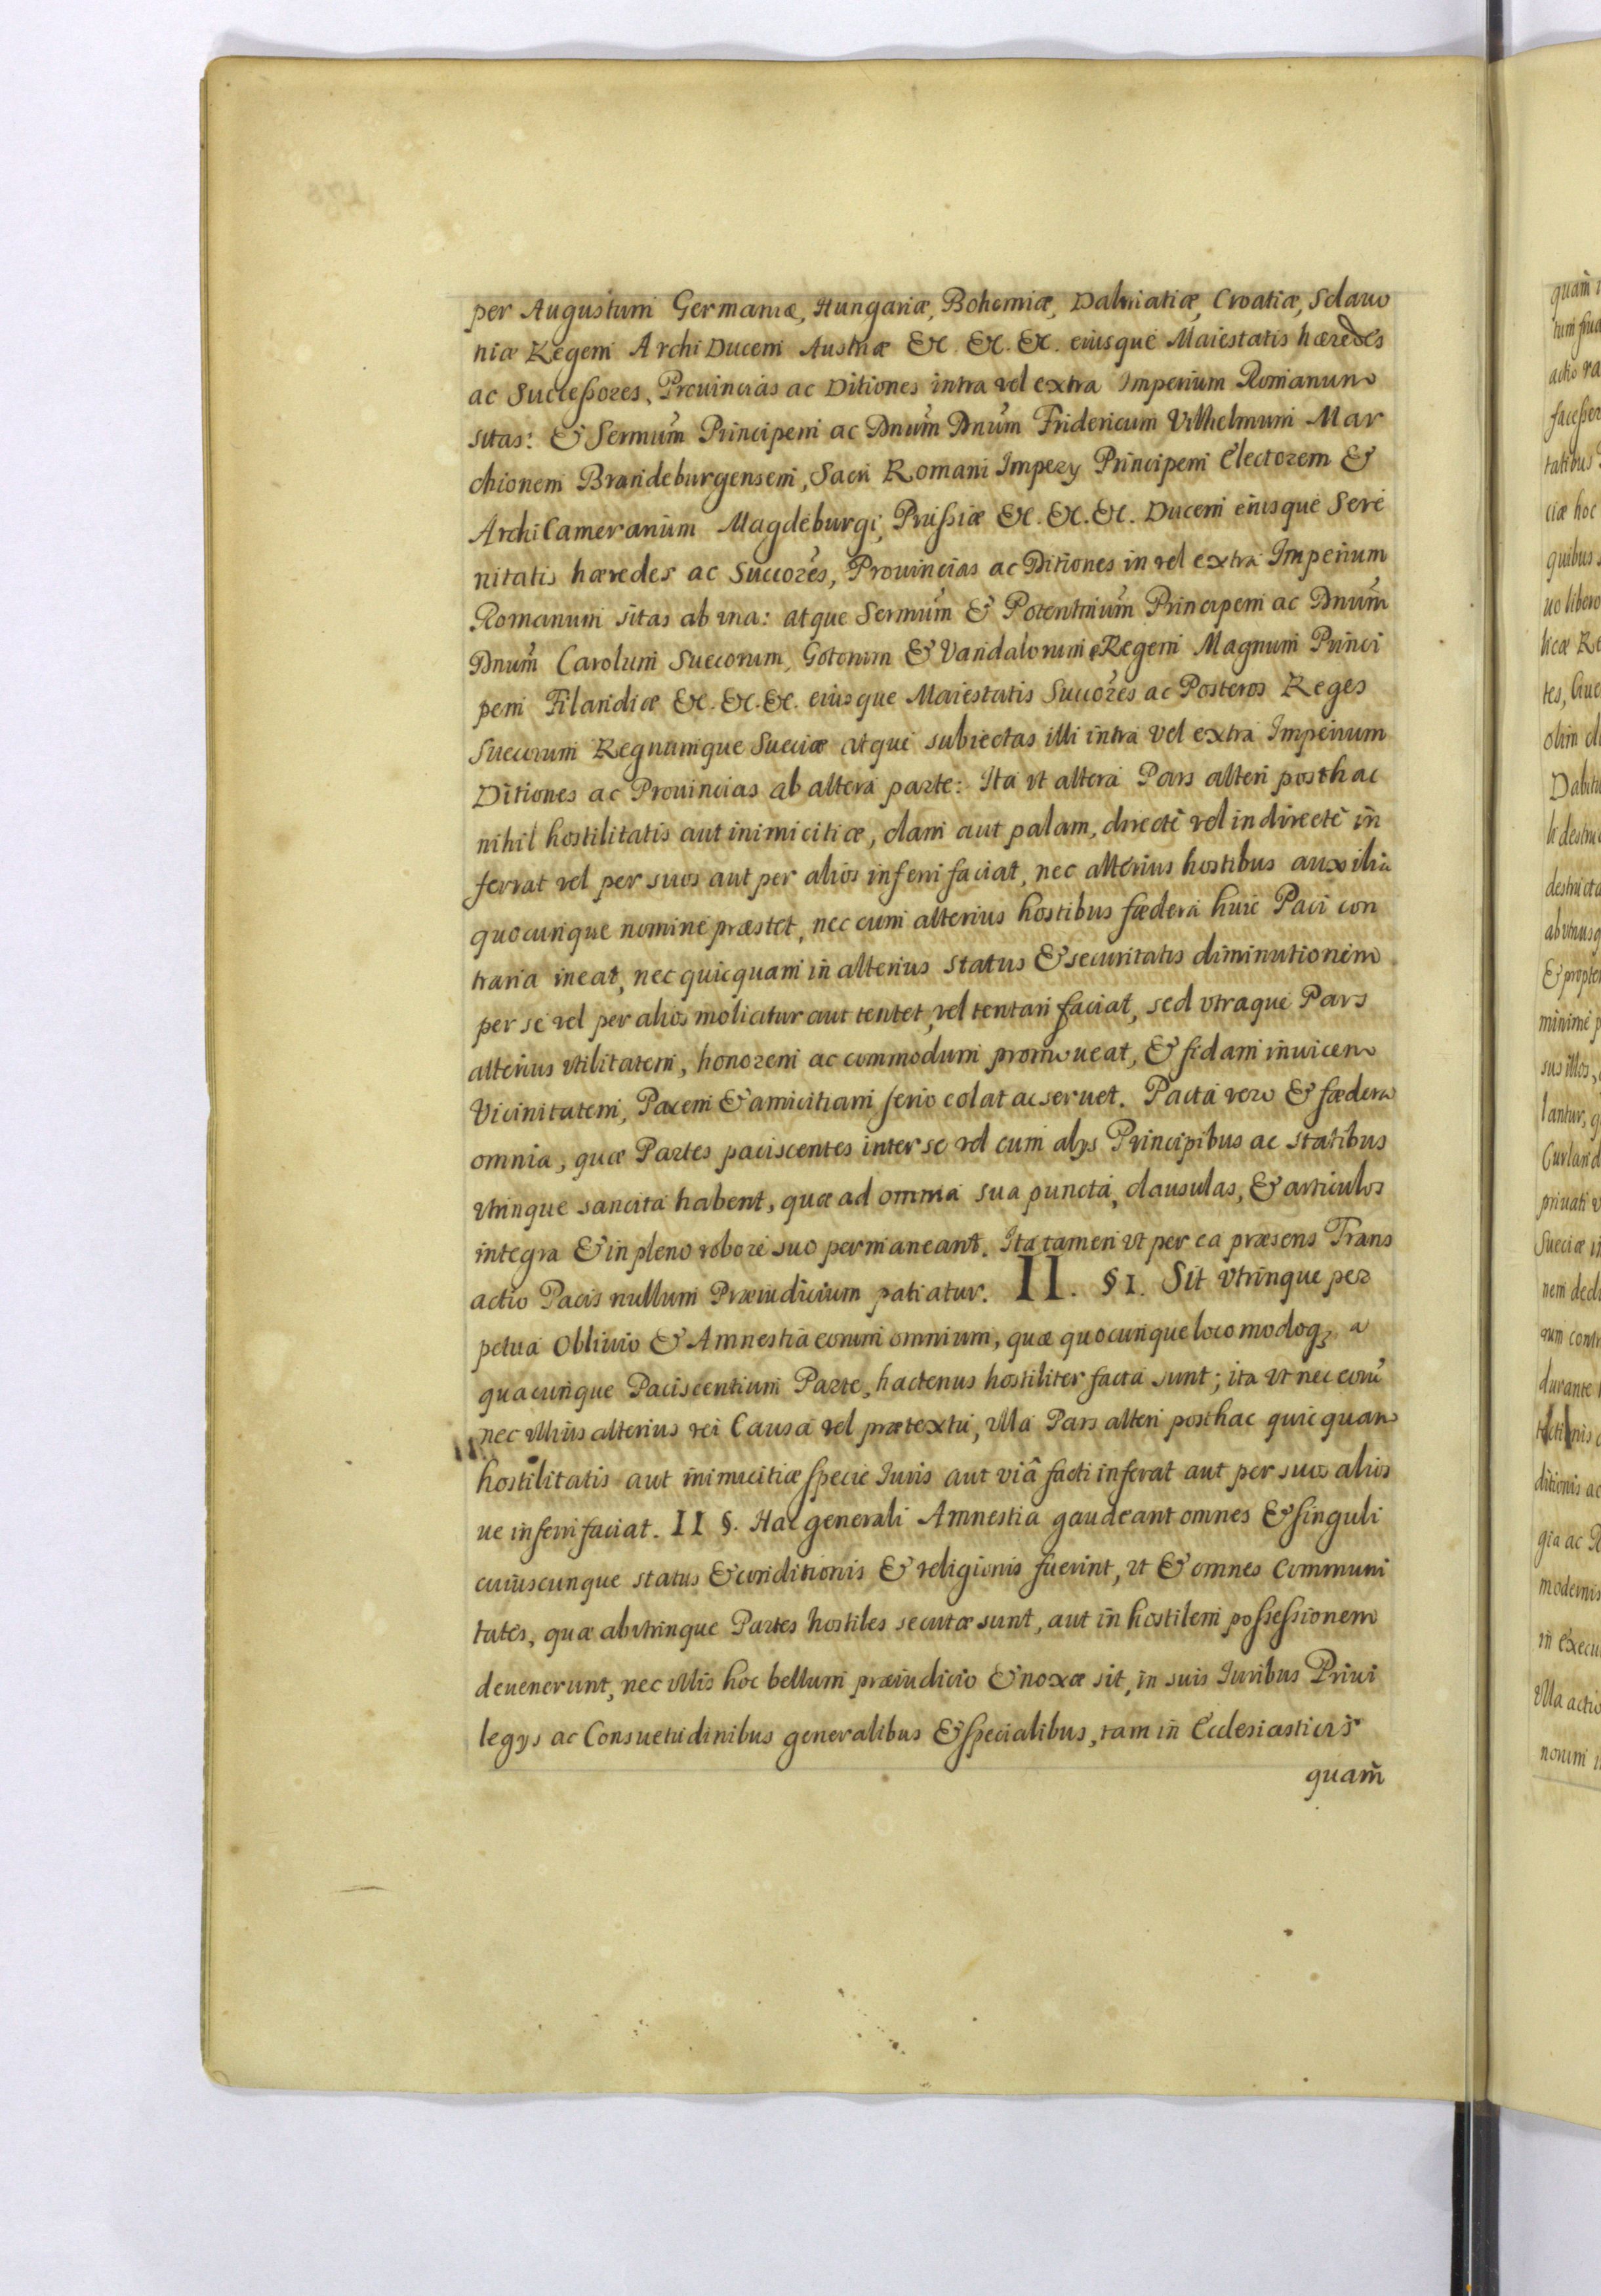 per Augustum Germaniæ, Hungariæ, Bohemiæ, Dalmatiæ, Croatiæ, Sclavo
niæ Regem Archi Ducem Austriæ &c. &c. &c. eiusque Maiestatis hæredes
ac Successores, Prouincias ac Ditiones intra vel extra Imperium Romanum
sitas: & Sermum Principem ac Dnum Dnum Fridericum Vilhelmum Mar
chionem Brandeburgensem, Sacri Romani Impery Principem Electorem &
ArchiCamerarium Magdeburgi, Prussiæ &c. &c. &c. Ducem eiusque Sere
nitatis hæredes ac Succores, Prouincias ac Ditiones in vel extra Imperium
Romanum sitas ab vna: atque Sermum & Potentmum Principem ac Dnum
Dnum Carolum Suecorum, Gotorum & Vandalorum Regem Magnum Princi
pem Filandiæ &c. &c. &c. eiusque Maiestatis Succores ac Posteros Reges
Suecorum Regnumque Sueciæ atque subiectas illi intra vel extra Imperium
Ditiones ac Prouincias ab altera parte: Ita vt altera Pars alteri posthac
nihil hostilitatis aut inimicitiæ, clam aut palam, directè vel indirectè in
ferrat vel per suos aut per alios inferri faciat, nec alterius hostibus auxilia
quocunque nomine præstet, nec cum alterius hostibus fœdera huic Paci con
traria ineat, nec quicquam in alterius status & securitatis diminutionem
per se vel per alios moliatur aut tentet, vel tentari faciat, sed vtraque Pars
alterius vtilitatem, honorem ac commodum promoueat, & fidam inuicem
Vicinitatem, Pacem & amicitiam serio colat ac seruet. Pacta vero & fœdera
omnia, quæ Partes paciscentes inter se vel cum alys Principibus ac Statibus
vtrinque sancita habent, quæ ad omnia sua puncta, clausulas, & articulos
integra & in pleno robore suo permaneant. Ita tamen vt per ea præsens Trans
actio Pacis nullum Præiudicium patiatur. II. §1. Sit vtrinque per
petua Obliuio & Amnestia eorum omnium, quæ quocunque loco modoqȝ a
quacunque Paciscentium Parte, hactenus hostiliter facta sunt; ita vt nec eorũ
nec vllius alterius rei Causa vel prætextu, vlla Pars alteri posthac quicquam
hostilitatis aut inimicitiæ specie Iuris aut viâ facti inferat aut per suos alios
ue inferri faciat. II §. Hac generali Amnestia gaudeant omnes & singuli
cuiuscunque status & conditionis & religionis fuerint, vt & omnes Communi
tates, quæ abvtrinque Partes hostiles secutæ sunt, aut in hostilem possessionem
deuenerunt, nec vllis hoc bellum præiudicio & noxæ sit, in suis Iuribus Priui
legys ac Consuetudinibus generalibus & specialibus, tam in Ecclesiasticis
quam